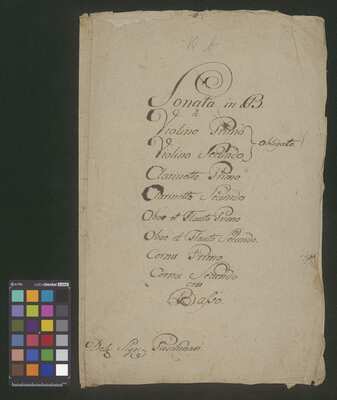 Sonata in B.
à
Violino Primo
Violino Secundo
Obligato
Clarinetto Primo
Clarinetto Secundo
Oboe et Flauto Primo
Oboe et Flauto Secundo.
Cornu Primo
Cornu Secundo
con
Basso.
Del Sig: